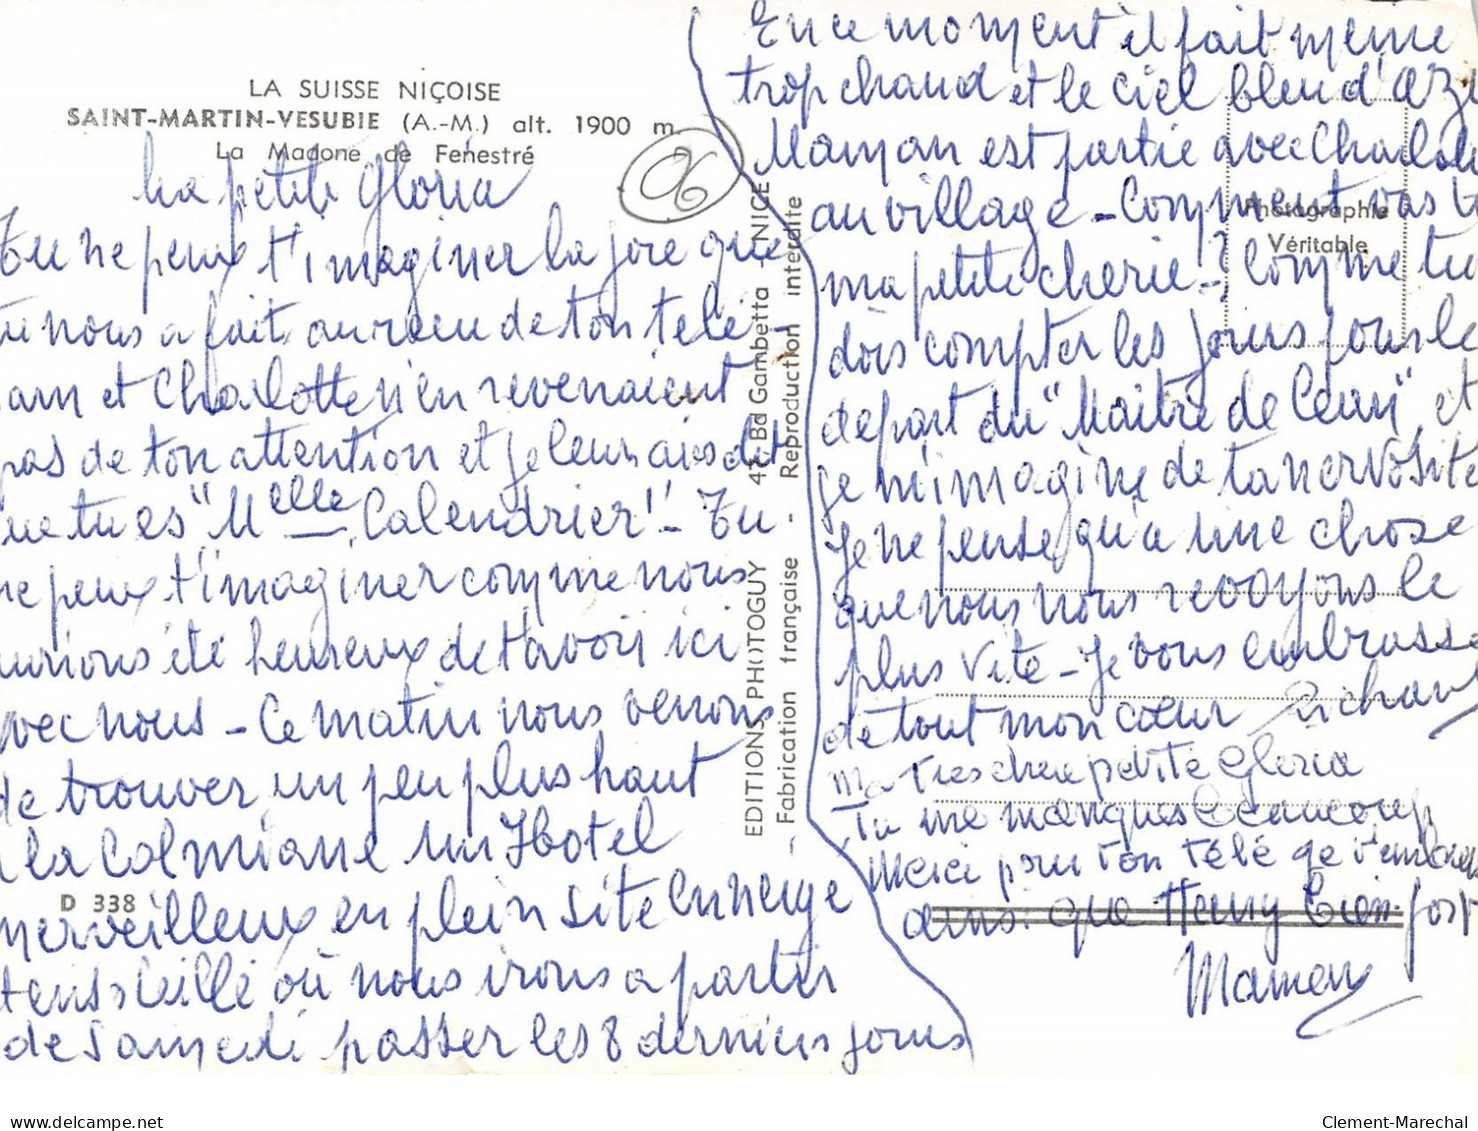 LA SUISSE NIÇOISE
SAINT-MARTIN-VESUBIE (A.-M.) alt. 1900 m
La Madone de Fenestré
06
Ma petite Gloria
Tu ne peux t'imaginer la joie que
tu nous a fait au reçu de ton télé
mam et Charlotte n'en revenaient
pas de ton attention et je leur ais dit
que tu es "Melle Calendrier"! - Tu
ne peux t'imaginer comme nous
aurions été heureux de t'avoir ici
avec nous - Ce matin nous venons
de trouver un peu plus haut
à la Colmiane un Hotel
D 338
merveilleux en plein site enneigé
et ensoleillé où nous irons a partir
de Samedi passer les 8 derniers jours
EDITIONS PHOTOGUY 47, Bd Gambetta - NICE
Fabrication française - Reproduction interdite
En ce moment il fait même
trop chaud et le ciel bleu d'azu
Maman est partie avec Charlotte
au village - Comment vas t
Photographie
Véritable
ma petite cherie!? Comme tu
dois compter les jours pour le
départ du "Maitre de Ceans", et
je m'imagine de ta nervosité
Je ne pense qu'a une chose
que nous nous revoyons le
plus vite - Je vous embrasse
de tout mon cœur Richard
Ma tres cher petite Gloria
Tu me manques beaucoup
Merci pour ton télé je t'embrasse
ainsi que Henry bien fort
Maman
Clement-Marechal